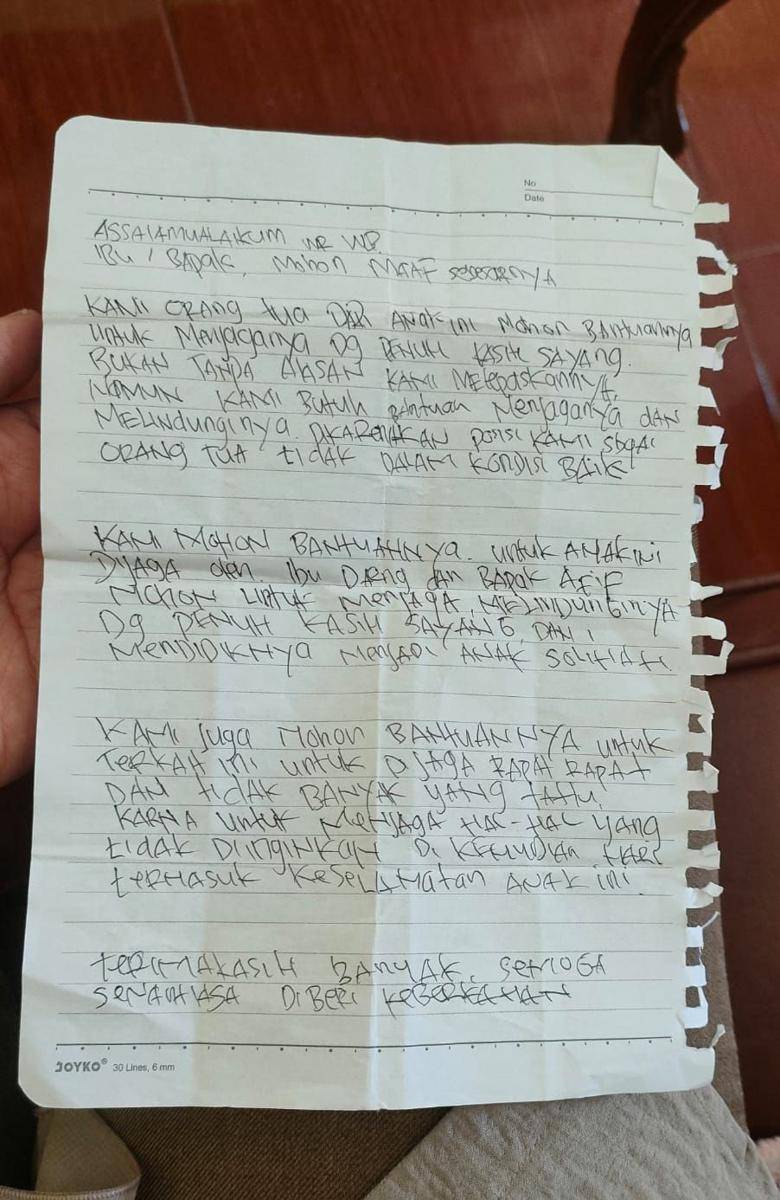 No
Date
ASSALAMUALAIKUM WR WB.
IBU / BAPAK, MOHON MAAF sebesarnya
KAMI ORANG tua DARI ANAK ini MOHON BANTUANNYA
untuk Menjaganya DG PENUH KASIH SAYANG.
BUKAN TANPA ALASAN KAMI MELEPASKANNYA,
NAMUN KAMI BUTUH BANTUAN MENJAGANYA DAN
MELINDUNGINYA. DIKARENAKAN posisi KAMI sbgai
ORANG TUA tidak DALAM KONDISI BAIK
KAMI MOHON BANTUANNYA untuk ANAK INI
DIJAGA oleh Ibu DAENG dan BAPAK AFIF
MOHON UNTUK MENJAGA, MELINDUNGINYA
DG PENUH KASIH SAYANG, DAN
MENDIDIKNYA MENJADI ANAK SOLIHAH.
KAMI juga MOHON BANTUANNYA untuk
TERKAIT ini untuk DIJAGA RAPAT RAPAT
DAN tidak BANYAK YANG TAHU,
KARNA untuk MENJAGA HAL-HAL YANG
tidak DIINGINKAN DI KEMUDIAN HARI
tERMASUK KESELAMATAN ANAK INI.
tERIMAKASIH BANYAK, SEMOGA
SENANTIASA DIBERI KEBERKAHAN
JOYKO® 30 Lines, 6 mm